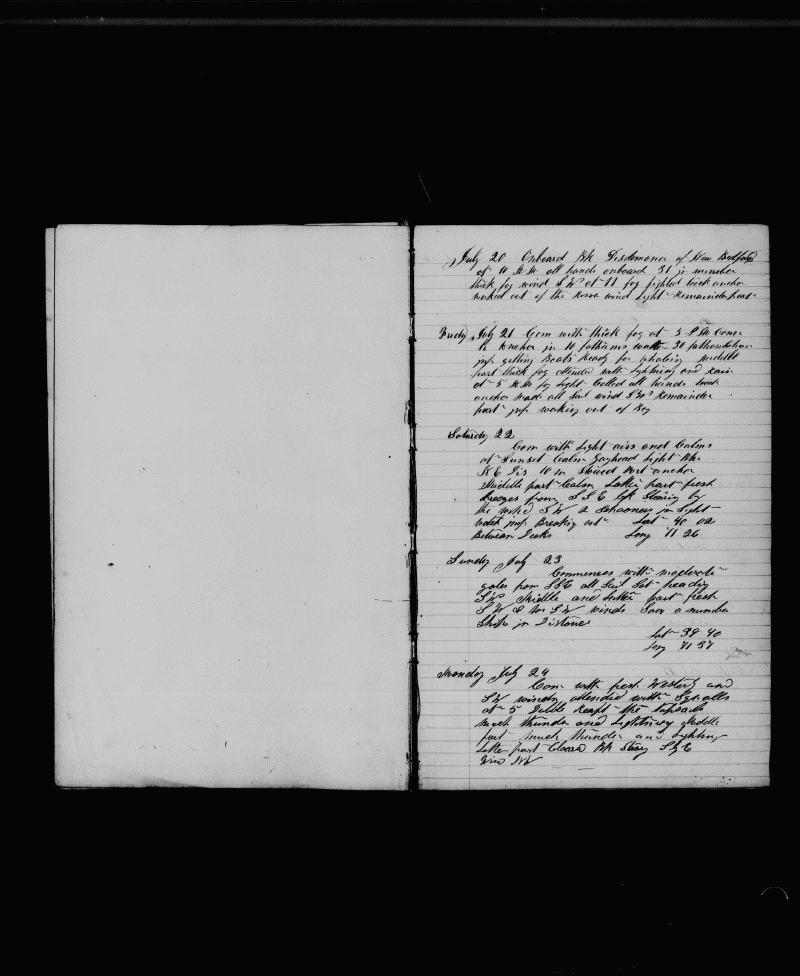 July 20 Onboard Bk Desdemona of New Bedford
at 10 A M all hands onboard 31 in number
thick fog wind S W at 11 fog lighted took anchor
worked out of the wind light Remainder part
Friday July 21 Com with thick fog at 5 P M Come
to Anchor in 10 fathoms water 30 fathoms chain
imp getting Boats Ready for whaling Middle
part thick fog attended with lightning and rain
at 5 A M fog light Called all hands took
anchor made all Sail wind S W Remainder
part imp working out of Bay
Saturday 22
Com with Light airs and Calms
at Sunset Calm Gayhead Light Bar
N E Dis 10 m Stowed Port anchor
Middle part Calm Latter part fresh
breezes from S S E Stearing by
the wind S W 2 Schooners in Sight
watch imp Breaking out Lat 40 02
Between Decks Long 71 26
Sunday July 23
Commences with moderate
gales from SSE all Sail Set heading
Middle and Latter part fresh
S W & W S W winds Saw a number
Ships in Distance
Lat 39 40
Long 71 37
Monday July 24
Com with fresh Westerly and
S W winds attended with Squalls
at 5 Double Reeft the topsails
much thunder and Lightning Middle
part much thunder and Lighting
Latter part Cleared Bk Stearg S by E
Wind